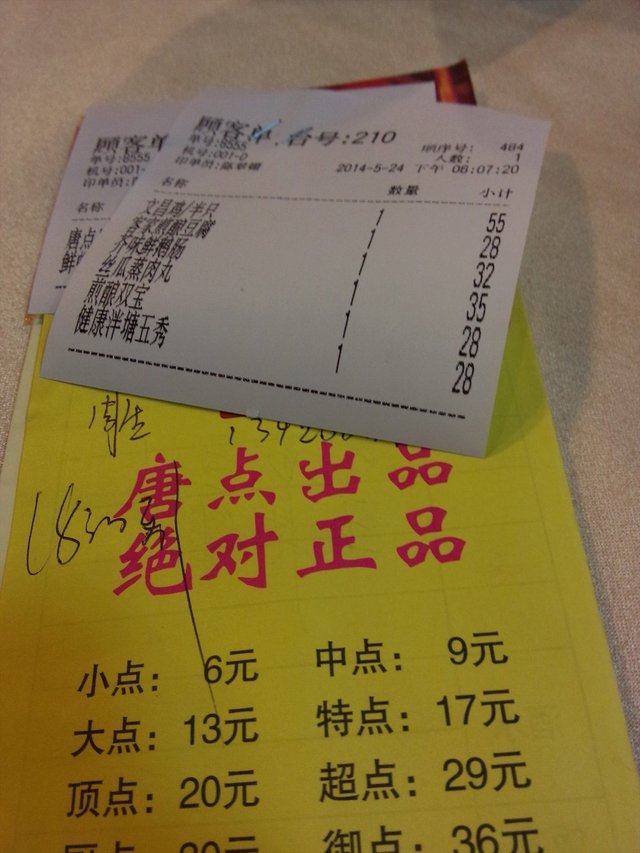 顾客单 台号:210
单号:8555
顺序号: 484
机号:001-0
人数: 1
2014-5-24 下午 06:07:20
名称 数量 小计
文昌鸡/半只 1 55
客家煎酿豆腐 1 28
芥味鲜鹅肠 1 32
丝瓜蒸肉丸 1 35
煎酿双宝 1 28
健康泮塘五秀 1 28
顾客单
单号:8555
机号:001-
名称
唐点
唐点出品
绝对正品
小点: 6元 中点: 9元
大点: 13元 特点: 17元
顶点: 20元 超点: 29元
御点: 36元